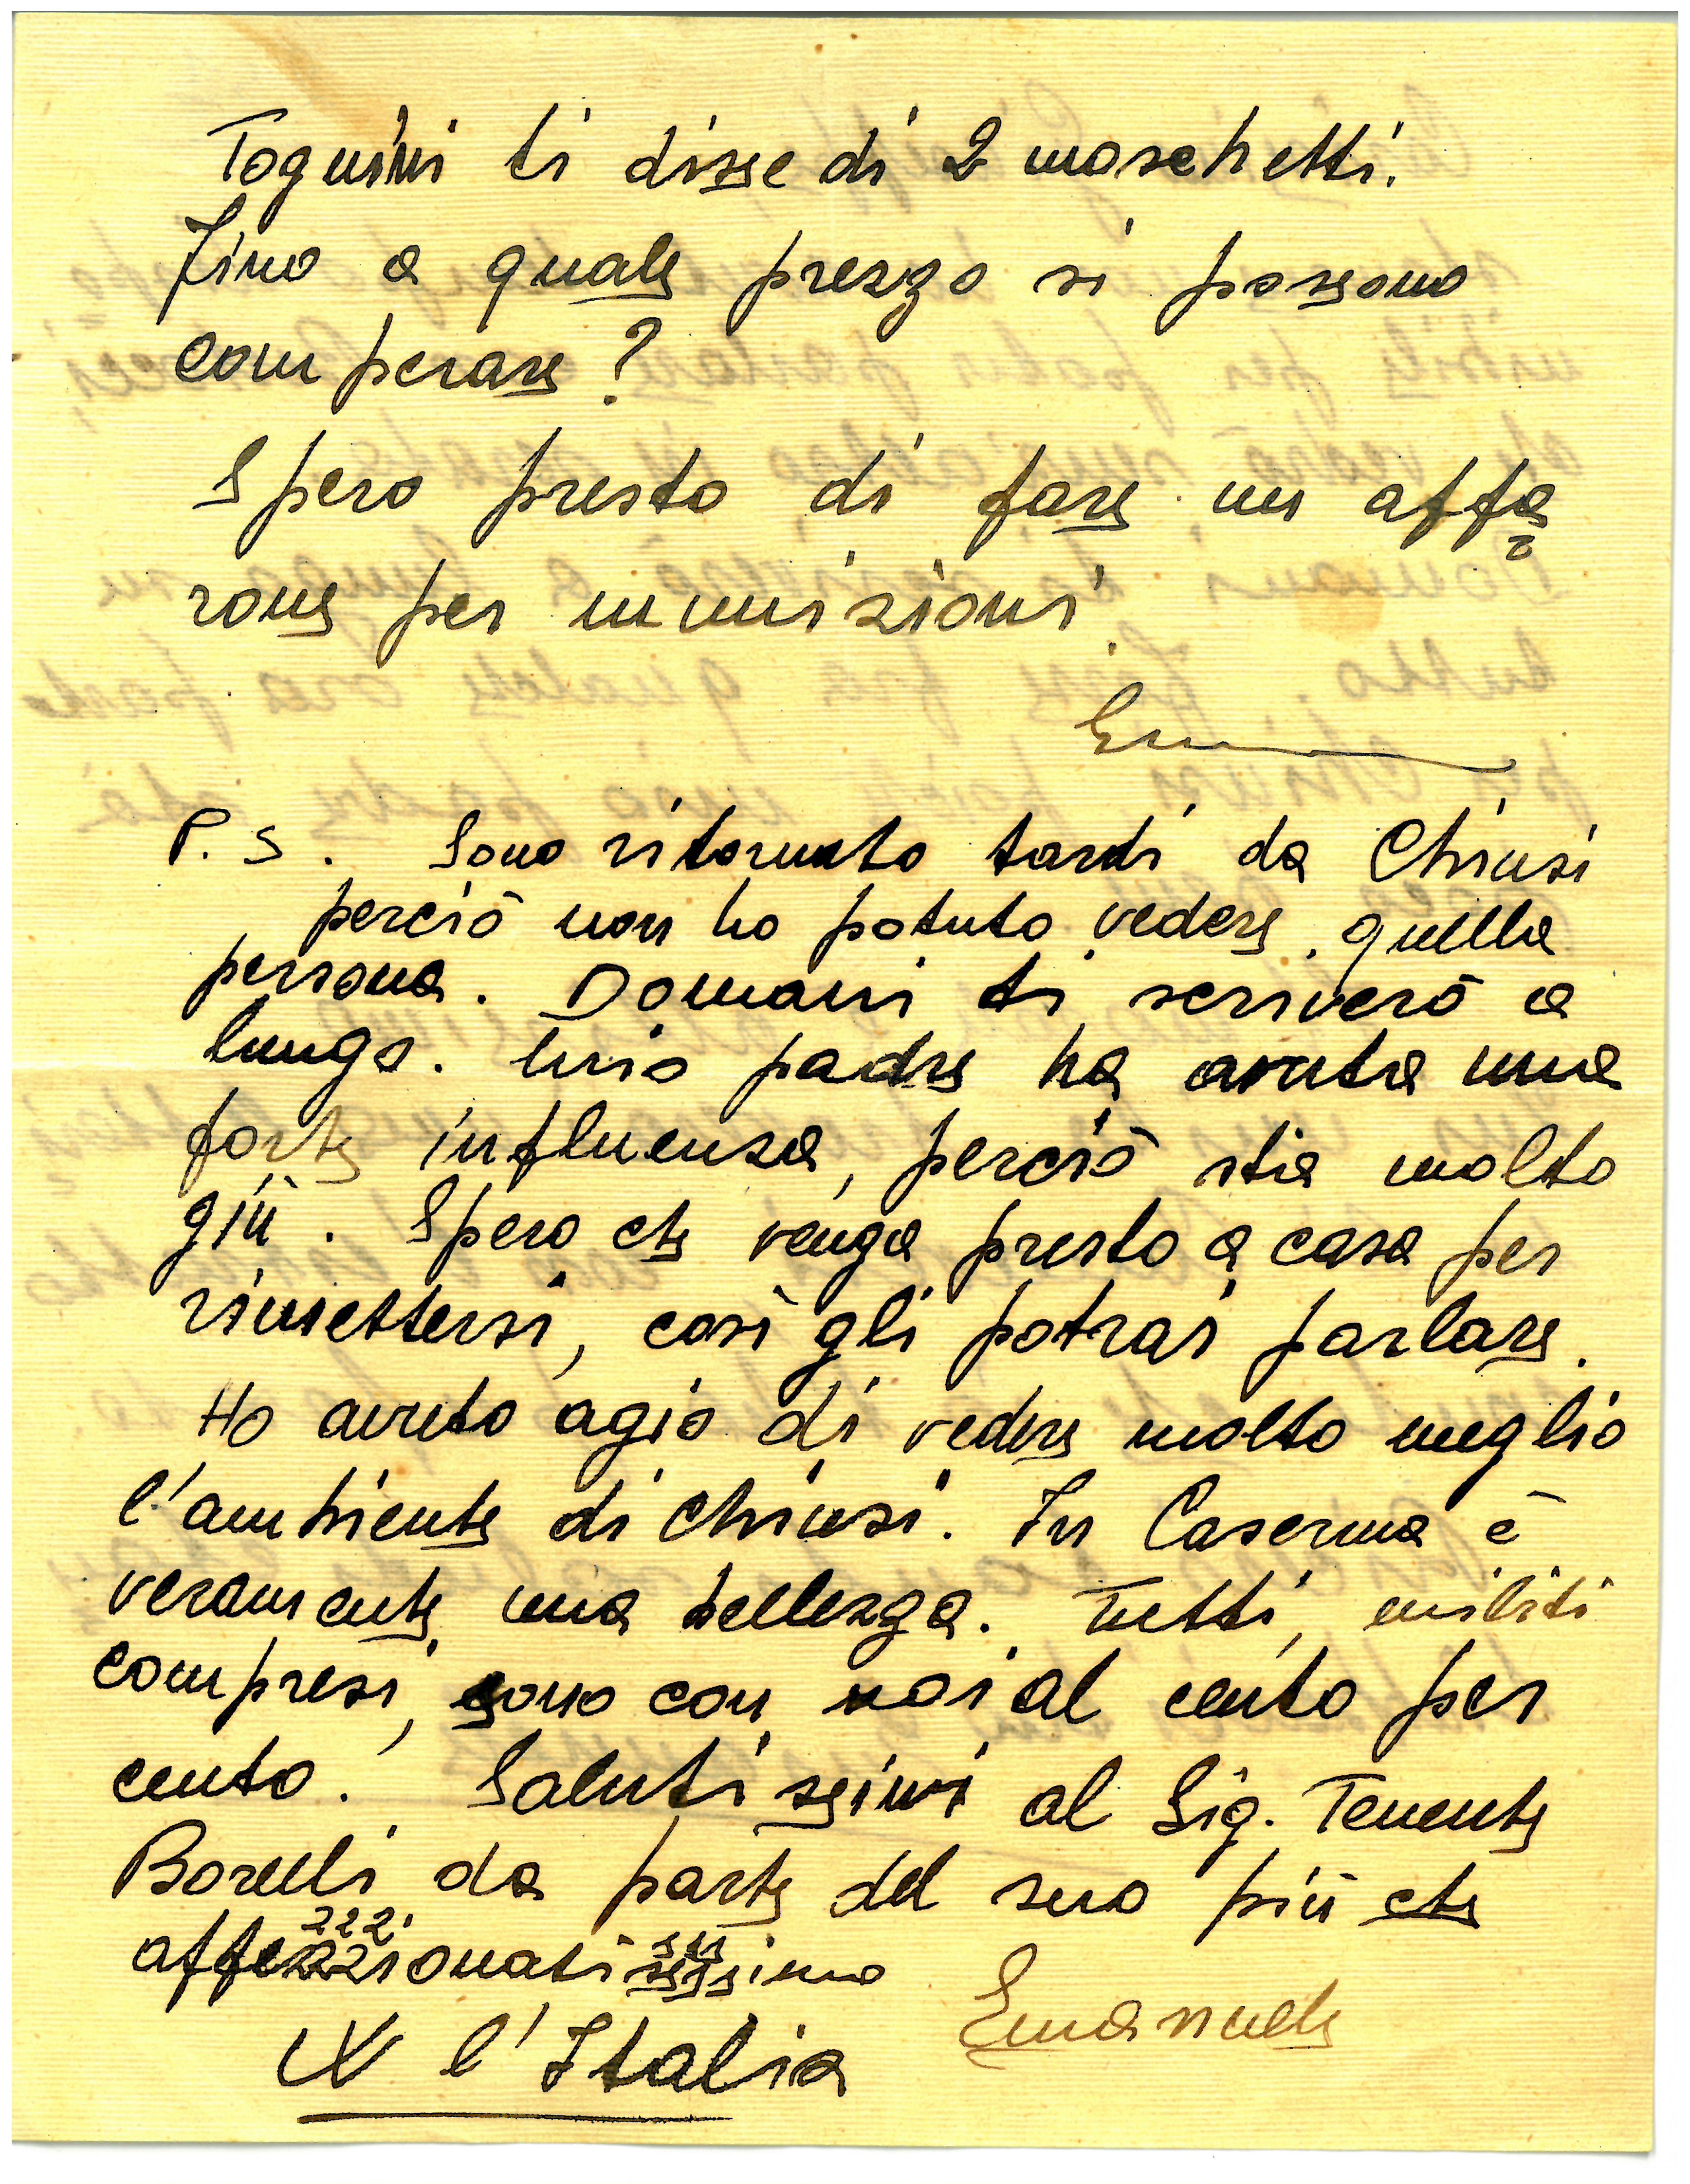 Tognini ti disse di 2 moschetti.
Fino a quale prezzo si possono
comperare?
Spero presto di fare un affa
rone per munizioni.
P.S. Sono ritornato tardi da Chiusi
perciò non ho potuto vedere quella
persona. Domani ti scriverò a
lungo. Mio padre ha avuta una
forte influenza, perciò stia molto
giù. Spero che venga presto a casa per
rimettersi, così gli potrai parlare.
Ho avuto agio di vedere molto meglio
l'ambiente di Chiusi. In Caserma è
veramente una bellezza. Tutti, militi
compresi, sono con noi al cento per
cento. Salutissimi al Sig. Tenente
Borelli da parte del suo più che
affezzzionatissssimo
Emanuele
W l'Italia